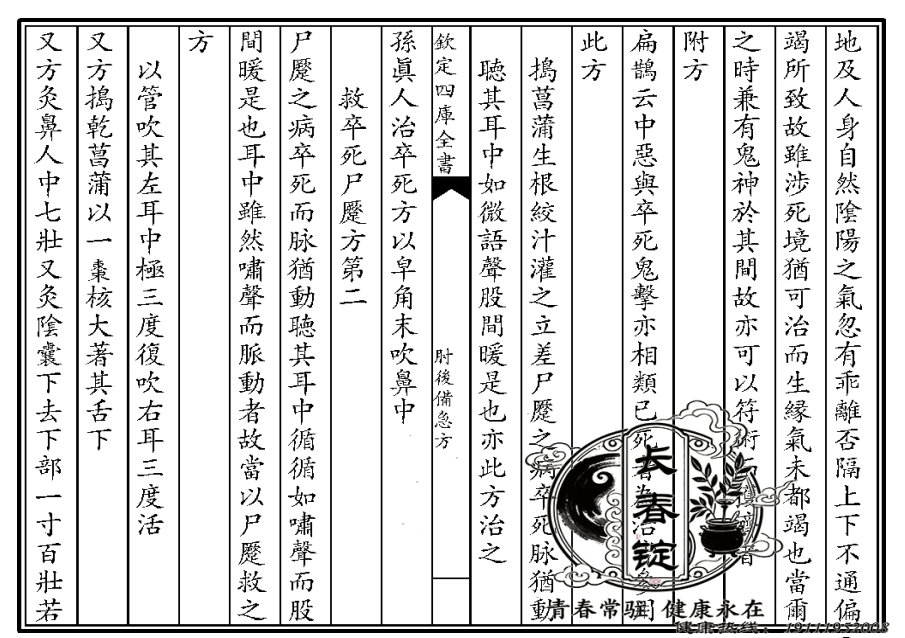 地及人身自然陰陽之氣忽有乖離否隔上下不通偏
竭所致故雖涉死境猶可治而生縁氣未都竭也當爾
之時兼有鬼神於其間故亦可以符術
附方
扁鵲云中惡與卒死鬼擊亦相類已死者為治
此方
搗菖蒲生根絞汁灌之立差尸蹷之病卒死脉猶動
聽其耳中如微語聲股間暖是也亦此方治之
欽定四庫全書
肘後備急方
孫眞人治卒死方以皁角末吹鼻中
救卒死尸蹷方第二
尸蹷之病卒死而脉猶動聽其耳中循循如嘯聲而股
間暖是也耳中雖然嘯聲而脈動者故當以尸蹷救之
方
以管吹其左耳中極三度復吹右耳三度活
又方搗乾菖蒲以一棗核大著其舌下
又方灸鼻人中七壯又灸陰囊下去下部一寸百壯若
长春锭
青春常驻 健康永在
健康热线：19111952008